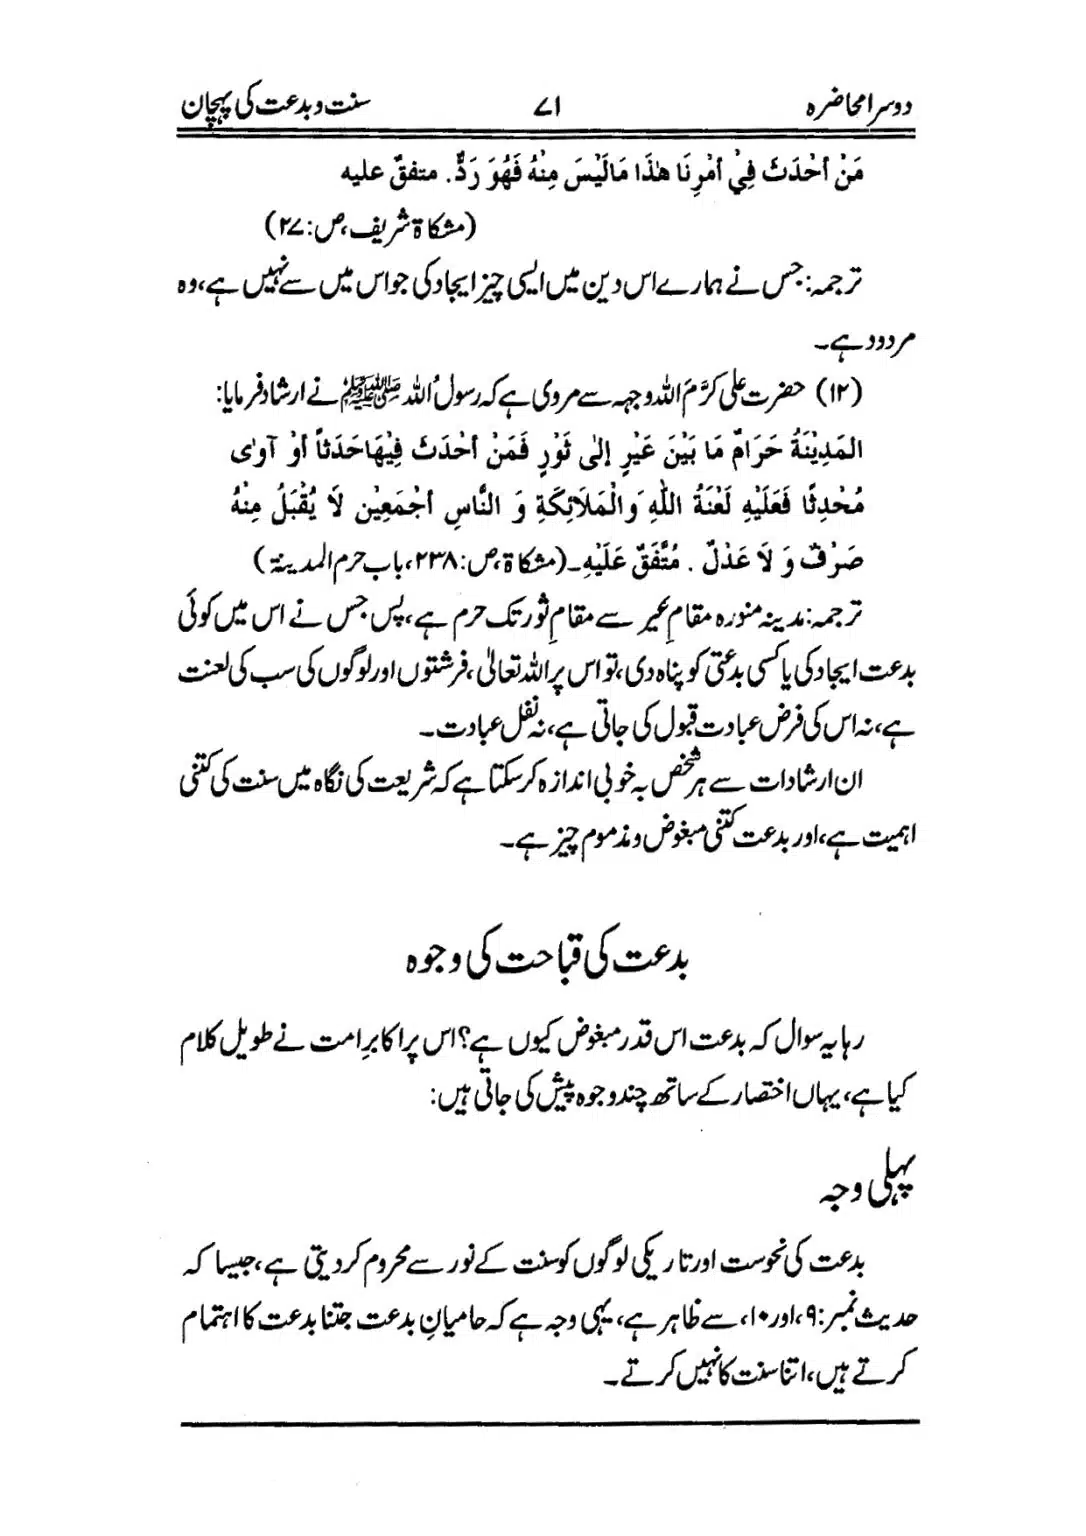 دوسرا محاضرہ ۷۱ سنت و بدعت کی پہچان
مَنْ أحْدَثَ فِيْ أمْرِنَا هٰذَا مَالَيْسَ مِنْهُ فَهُوَ رَدٌّ. متفقٌ عليه
(مشکاۃ شریف، ص: ۲۷)
ترجمہ: جس نے ہمارے اس دین میں ایسی چیز ایجاد کی جو اس میں سے نہیں ہے، وہ
مردود ہے۔
(۱۲) حضرت علی کرَّمَ اللہ وجہہ سے مروی ہے کہ رسولُ اللہ ﷺ نے ارشاد فرمایا:
المَدِيْنَةُ حَرَامٌ مَا بَيْنَ عَيْرٍ إلى ثَوْرٍ فَمَنْ أحْدَثَ فِيْهَا حَدَثاً أوْ آوىٰ
مُحْدِثًا فَعَلَيْهِ لَعْنَةُ اللهِ وَالْمَلَائِكَةِ وَ النَّاسِ أجْمَعِيْن لَا يُقْبَلُ مِنْهُ
صَرْفٌ وَ لَا عَدْلٌ . مُتَّفَقٌ عَلَيْهِ۔ (مشکاۃ، ص: ۲۳۸، باب حرم المدینۃ)
ترجمہ: مدینہ منورہ مقامِ عَیر سے مقامِ ثور تک حرم ہے، پس جس نے اس میں کوئی
بدعت ایجاد کی یا کسی بدعتی کو پناہ دی، تو اس پر اللہ تعالیٰ، فرشتوں اور لوگوں کی سب کی لعنت
ہے، نہ اس کی فرض عبادت قبول کی جاتی ہے، نہ نفل عبادت۔
ان ارشادات سے ہر شخص بہ خوبی اندازہ کر سکتا ہے کہ شریعت کی نگاہ میں سنت کی کتنی
اہمیت ہے، اور بدعت کتنی مبغوض و مذموم چیز ہے۔
بدعت کی قباحت کی وجوہ
رہا یہ سوال کہ بدعت اس قدر مبغوض کیوں ہے؟ اس پر اکابرِ امت نے طویل کلام
کیا ہے، یہاں اختصار کے ساتھ چند وجوہ پیش کی جاتی ہیں:
پہلی وجہ
بدعت کی نحوست اور تاریکی لوگوں کو سنت کے نور سے محروم کر دیتی ہے، جیسا کہ
حدیث نمبر: ۹، اور ۱۰، سے ظاہر ہے، یہی وجہ ہے کہ حامیانِ بدعت جتنا بدعت کا اہتمام
کرتے ہیں، اتنا سنت کا نہیں کرتے۔